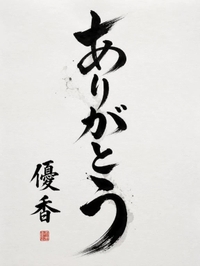 ありがとう
優香